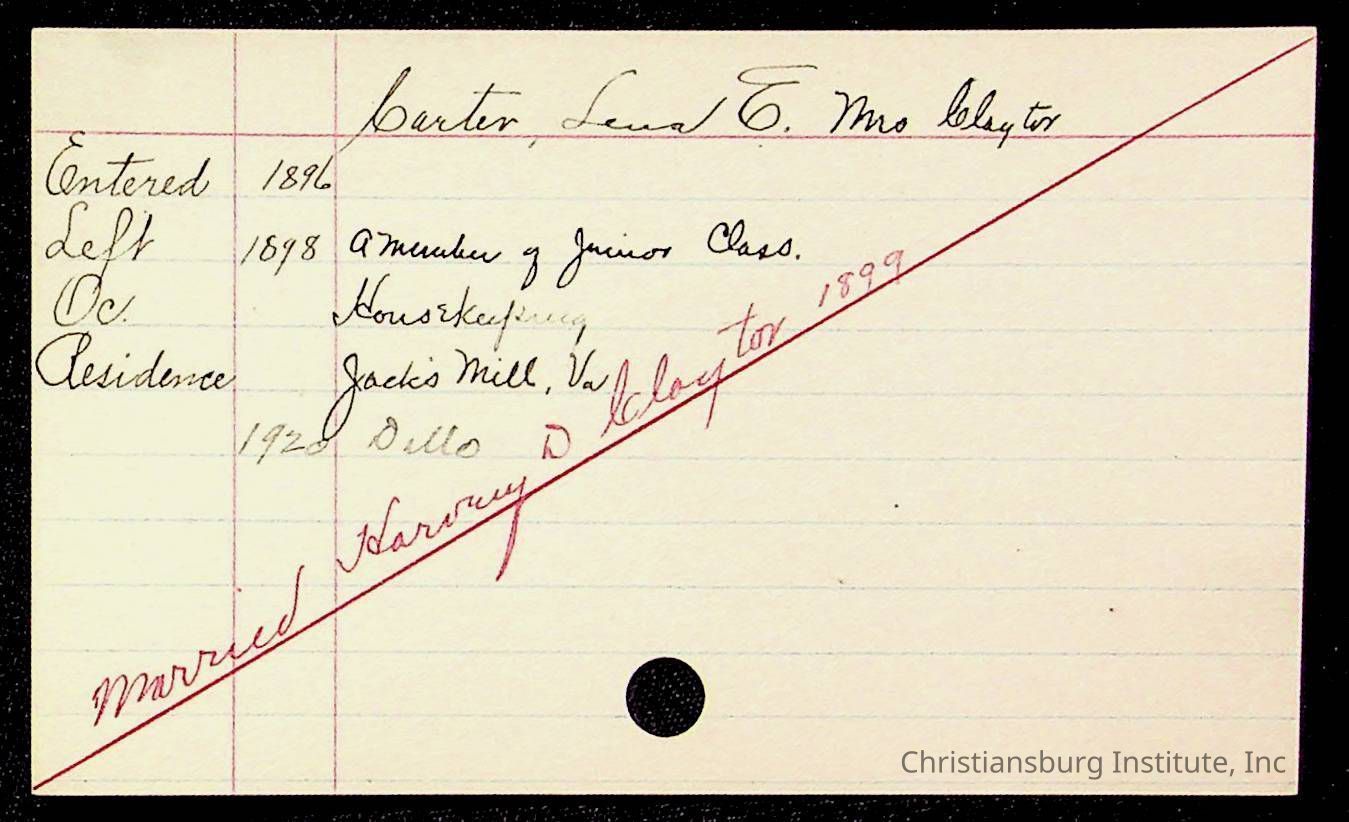 Carter, Lena E. Mrs Claytor
Entered 1896
Left 1898 A member of Junior Class.
Oc. Housekeeping
Residence Jack's Mill, Va
1920 Ditto
Married Harvey D Claytor 1899
Christiansburg Institute, Inc